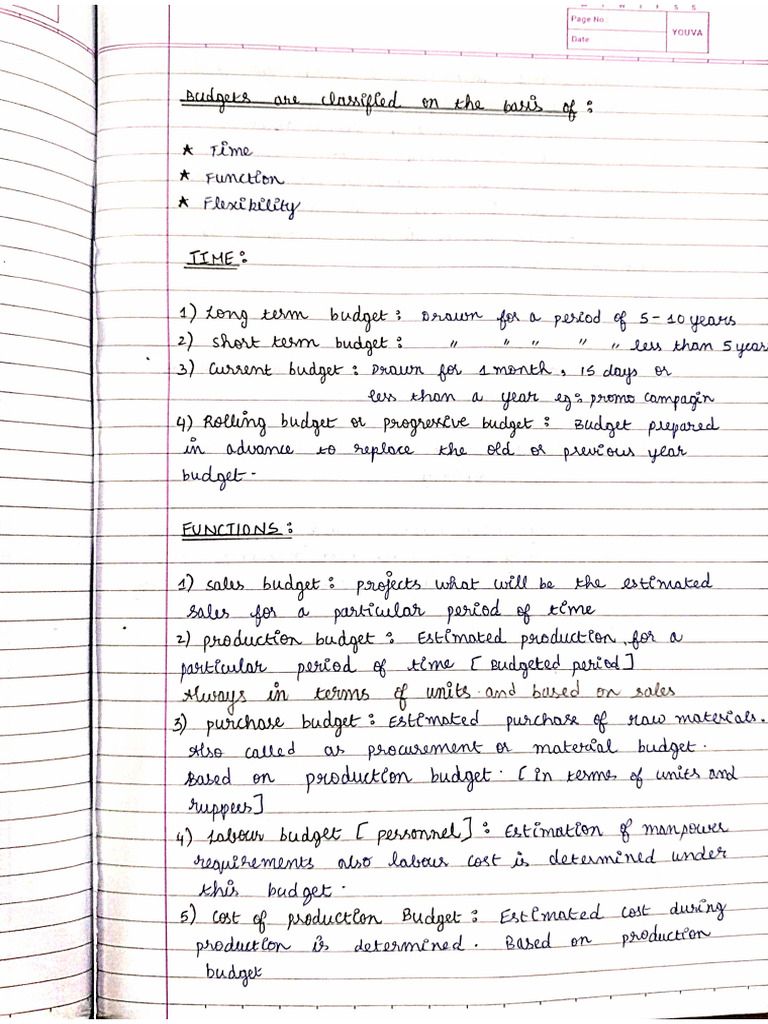 Page No
Date
YOUVA
Budgets are classified on the basis of :
★ Time
★ Function
★ Flexibility
TIME :
1) Long term budget : Drawn for a period of 5-10 years
2) Short term budget : " " " " " less than 5 years
3) Current budget : Drawn for 1 month, 15 days or
less than a year eg: promo campagin
4) Rolling budget or progressive budget : Budget prepared
in advance to replace the old or previous year
budget.
FUNCTIONS :
1) sales budget : projects what will be the estimated
sales for a particular period of time
2) production budget : Estimated production for a
particular period of time [Budgeted period]
Always in terms of units and based on sales
3) purchase budget : Estimated purchase of raw materials.
Also called as procurement or material budget.
Based on production budget. [in terms of units and
ruppees]
4) Labour budget [personnel] : Estimation of manpower
requirements also labour cost is determined under
this budget.
5) cost of production Budget : Estimated cost during
production is determined. Based on production
budget